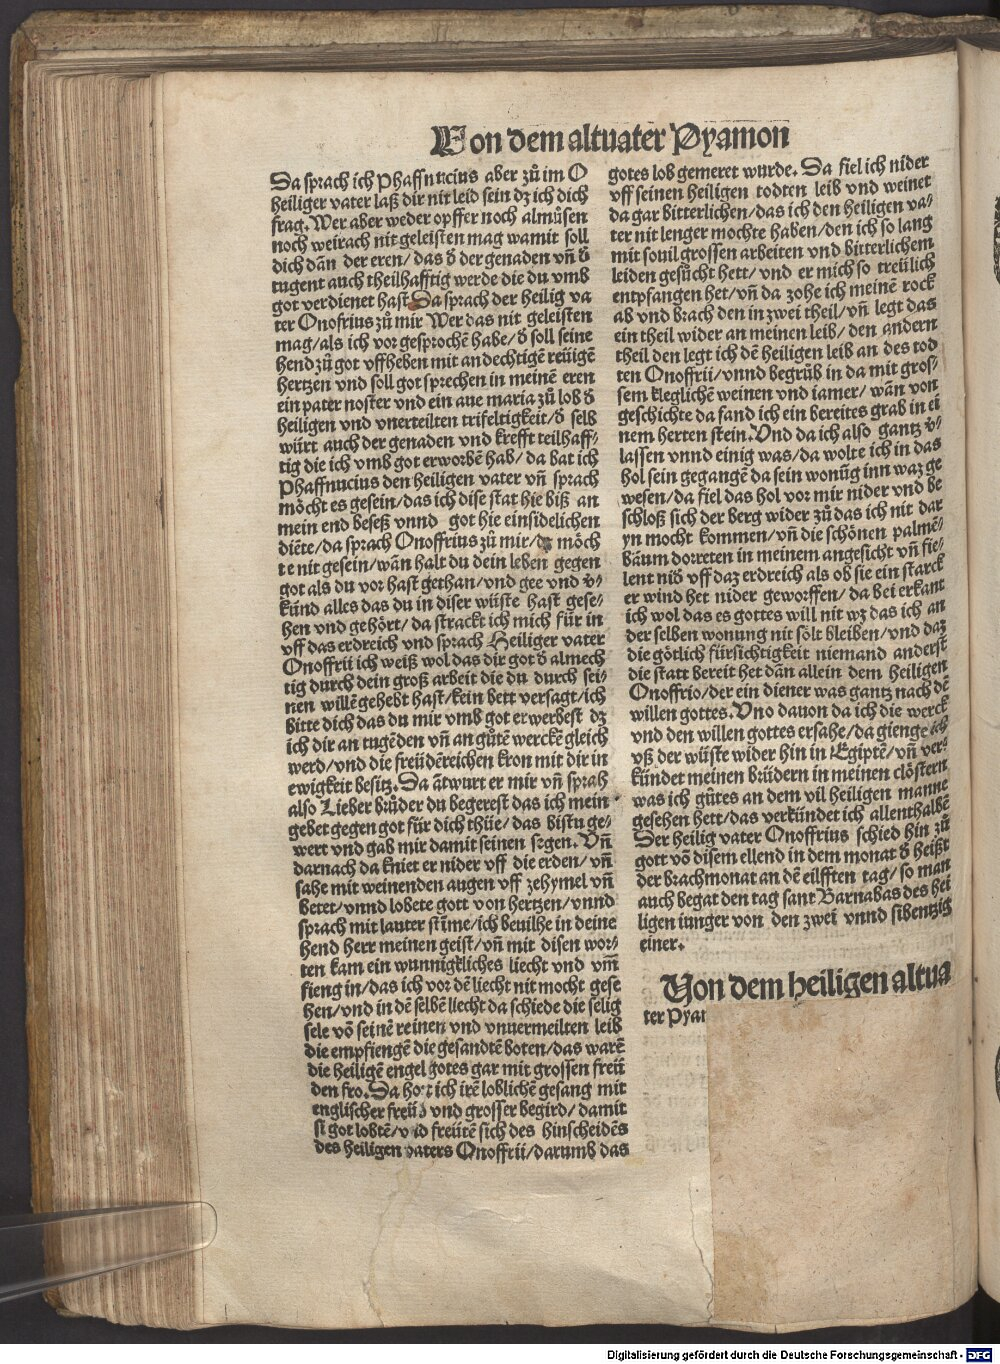 Von dem altuater Pyamon
Da sprach ich Phaffnucius aber zů im O
heiliger vater laß dir nit leid sein dz ich dich
frag. Wer aber weder opffer noch almůsen
noch weirach nit geleisten mag wamit soll
dich dān der eren/ das ð der genaden vn̄ ð
tugent auch theilhafftig werde die du vmb
got verdienet hast Da sprach der heilig va
ter Onofrius zů mir Wer das nit geleisten
mag/als ich vor gesprochē habe/ð soll seine
hend zů got vffheben mit andechtigē reüigē
hertzen vnd soll got sprechen in meinē eren
ein pater noster vnd ein aue maria zů lob ð
heiligen vnd vnerteilten trifeltigkeit/ð selb
würt auch der genaden vnd krefft teilhaff⸗
tig die ich vmb got erworbē hab/ da bat ich
Phaffnucius den heiligen vater vn̄ sprach
möcht es gesein/das ich dise stat hie biß an
mein end beseß vnnd got hie einsidelichen
diēte/da sprach Onoffrius zů mir/dz möch
te nit gesein/wān halt du dein leben gegen
got als du vor hast gethan/vnd gee vnd v̄⸗
künd alles das du in diser wüste hast gese⸗
hen vnd gehört/ da strackt ich mich für in
vff das erdreich vnd sprach Heiliger vater
Onoffrii ich weiß wol das dir got ð almech
tig durch dein groß arbeit die du durch sei⸗
nen willē gehebt hast/kein bett versagt/ich
bitte dich das du mir vmb got erwerbest dz
ich dir an tugēden vn̄ an gůtē werckē gleich
werd/vnd die freüdēreichen kron mit dir in
ewigkeit besitz. Da ātwurt er mir vn̄ sprah
also Lieber brůder du begerest das ich mein
gebet gegen got für dich thüe/ das bistu ge⸗
wert vnd gab mir damit seinen segen. Vn̄
darnach da kniet er nider vff die erden/ vn̄
sahe mit weinenden augen vff zehymel vn̄
betet/vnnd lobete gott von hertzen/vnnd
sprach mit lauter stīme/ich beuilhe in deine
hend herr meinen geist/vn̄ mit disen wor⸗
ten kam ein wunnigkliches liecht vnd vm̄
fieng in/das ich vor dē liecht nit mocht gese
hen/vnd in dē selbē liecht da schiede die selig
sele vō seinē reinen vnd vnuermeilten leib
die empfiengē die gesandtē boten/das warē
die heiligē engel gotes gar mit grossen freü
den fro. Da hort ich irē loblichē gesang mit
englischer freüd vnd grosser begird/ damit
si got lobtē/vnd freütē sich des hinscheidēs
des heiligen vaters Onoffrii/darumb das
gotes lob gemeret wurde. Da fiel ich nider
vff seinen heiligen todten leib vnd weinet
da gar bitterlichen/das ich den heiligen va⸗
ter nit lenger mochte haben/den ich so lang
mit souil grossen arbeiten vnd bitterlichem
leiden gesůcht hett/vnd er mich so treülich
entpfangen het/vn̄ da zohe ich meinē rock
ab vnd brach den in zwei theil/vn̄ legt das
ein theil wider an meinen leib/ den andern
theil den legt ich dē heiligen leib an des tod
ten Onoffrii/vnnd begrůb in da mit gros⸗
sem kleglichē weinen vnd iamer/ wān von
geschichte da fand ich ein bereites grab in ei
nem herten stein. Vnd da ich also gantz v̄⸗
lassen vnnd einig was/da wolte ich in das
hol sein gegangē da sein wonūg inn waz ge
wesen/da fiel das hol vor mir nider vnd be
schloß sich der berg wider zů das ich nit dar
yn mocht kommen/vn̄ die schönen palmē⸗
bäum dorreten in meinem angesicht vn̄ fie⸗
lent nið vff daz erdreich als ob sie ein starck
er wind het nider geworffen/da bei erkant
ich wol das es gottes will nit wz das ich an
der selben wonung nit sölt bleiben/vnd daz
die götlich fürsichtigkeit niemand anderst
die statt bereit het dān allein dem heiligen
Onoffrio/der ein diener was gantz nach dē
willen gottes. Vnd dauon da ich die werck
vnd den willen gottes ersahe/da gienge ich
vß der wüste wider hin in Egiptē/vn̄ ver⸗
kündet meinen brüdern in meinen clöstern
was ich gůtes an dem vil heiligen manne
gesehen hett/das verkündet ich allenthalbē
Der heilig vater Onoffrius schied hin zů
gott vō disem ellend in dem monat ð heißt
der brachmonat an dē eilfften tag/so man
auch begat den tag sant Barnabas des hei
ligen iunger von den zwei vnnd sibentzig
einer.
Von dem heiligen altua
ter Pyam
Digitalisierung gefördert durch die Deutsche Forschungsgemeinschaft - DFG